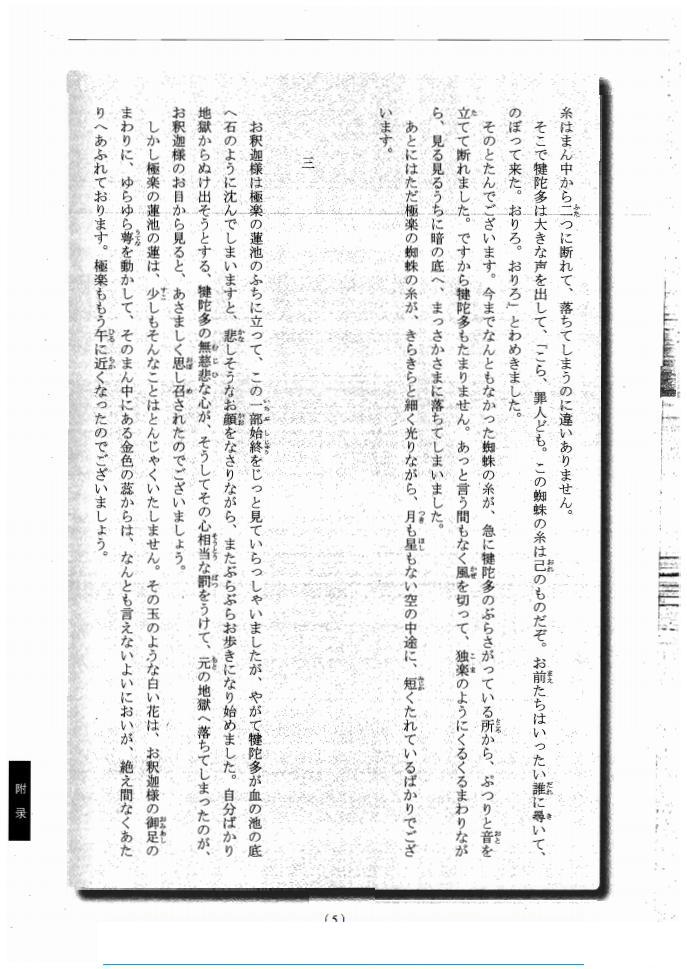 糸はまん中から二つに断れて、落ちてしまうのに違いありません。
そこで犍陀多は大きな声を出して、「こら、罪人ども。この蜘蛛の糸は己のものだぞ。お前たちはいったい誰に尋いて、
のぼって来た。おりろ。おりろ」とわめきました。
そのとたんでございます。今までなんともなかった蜘蛛の糸が、急に犍陀多のぶらさがっている所から、ぷつりと音を
立てて断れました。ですから犍陀多もたまりません。あっと言う間もなく風を切って、独楽のようにくるくるまわりなが
ら、見る見るうちに暗の底へ、まっさかさまに落ちてしまいました。
あとにはただ極楽の蜘蛛の糸が、きらきらと細く光りながら、月も星もない空の中途に、短くたれているばかりでござ
います。
三
お釈迦様は極楽の蓮池のふちに立って、この一部始終をじっと見ていらっしゃいましたが、やがて犍陀多が血の池の底
へ石のように沈んでしまいますと、悲しそうなお顔をなさりながら、またぶらぶらお歩きになり始めました。自分ばかり
地獄からぬけ出そうとする、犍陀多の無慈悲な心が、そうしてその心相当な罰をうけて、元の地獄へ落ちてしまったのが、
お釈迦様のお目から見ると、あさましく思し召されたのでございましょう。
しかし極楽の蓮池の蓮は、少しもそんなことはとんじゃくいたしません。その玉のような白い花は、お釈迦様の御足の
まわりに、ゆらゆら萼を動かして、そのまん中にある金色の蕊からは、なんとも言えないよいにおいが、絶え間なくあた
りへあふれております。極楽ももう午に近くなったのでございましょう。
附录
(5)